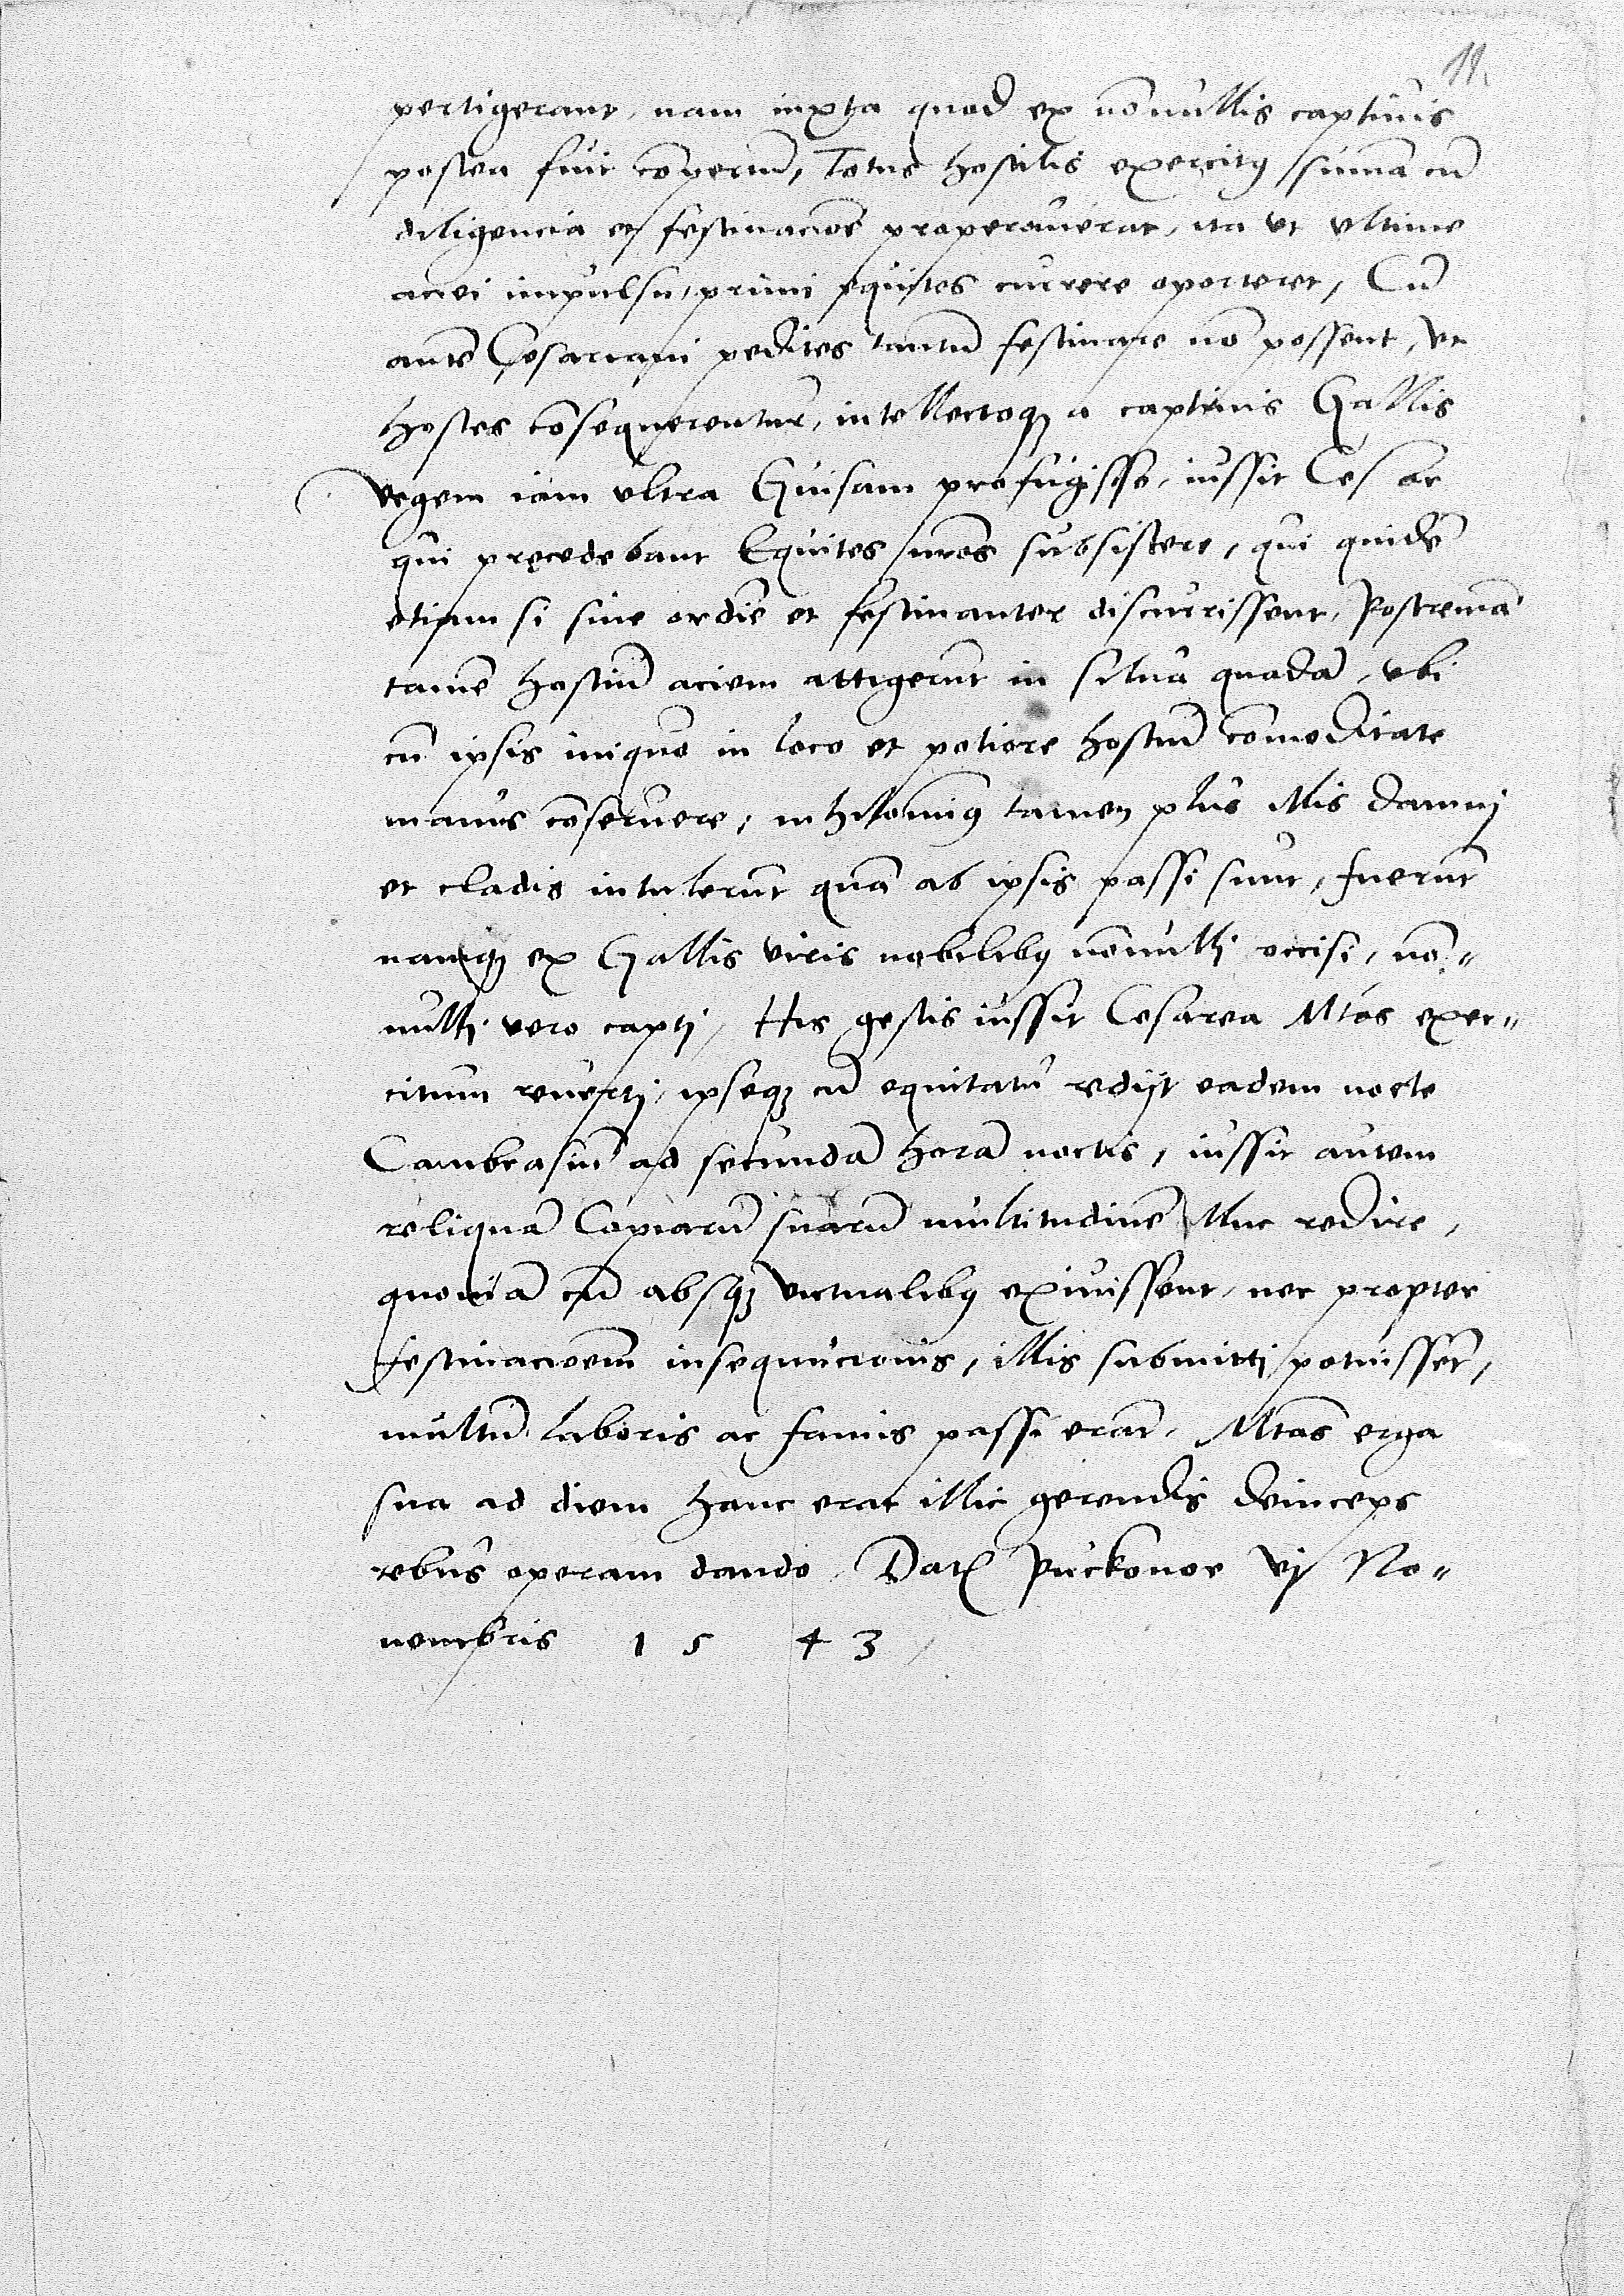 11
pertigerant, nam iuxta quod ex nōnullis captiuis
postea fuit cōpertū, Totus hostilis exercitꝰ sūma cū
diligencia et festinaciōe properauerat, ita vt vltime
aciei impulsu, primi equites currere oporteret, Cū
autē Cesareani pedites tantū festinare nō possent, vt
hostes cōsequerentur, intellectoqꝫ a captiuis Gallis
regem iam vltra Guisam profugisse, iussit Cesar
qui precedebant Equites nr̄os subsistere, qui quidē
etiam si sine ordīe et festinanter discurrissent, Postremā
tamē hostiū aciem attigerūt in silua quadā, vbi
cū ipsis iniquo in loco et potiore hostiū cōmoditate
manus cōseruere, nihilominꝰ tamen plus illis damnj
et cladis intulerūt quā ab ipsis passi sunt, fuerūt
namqꝫ ex Gallis viris nobilibꝰ nōnullj occisi, nō-
nullj vero captj, His gestis iussit Cesarea Mtas exer-
citum reuertj, ipseqꝫ cū equitatu redijt eadem nocte
Cambrasiū ad secundā horā noctis, iussit autem
reliquā Copiarū suarū multitudinē illuc redire,
quoniā cū absqꝫ victualibꝰ exiuissent, nec propter
festinacioēm insequucionis, illis submittj potuissēt,
multū laboris ac famis passi erāt, Mtas erga
sua ad diem hanc erat illic gerendis deinceps
rebus operam dando, Dat Puckonoe vj No-
uembris 1543